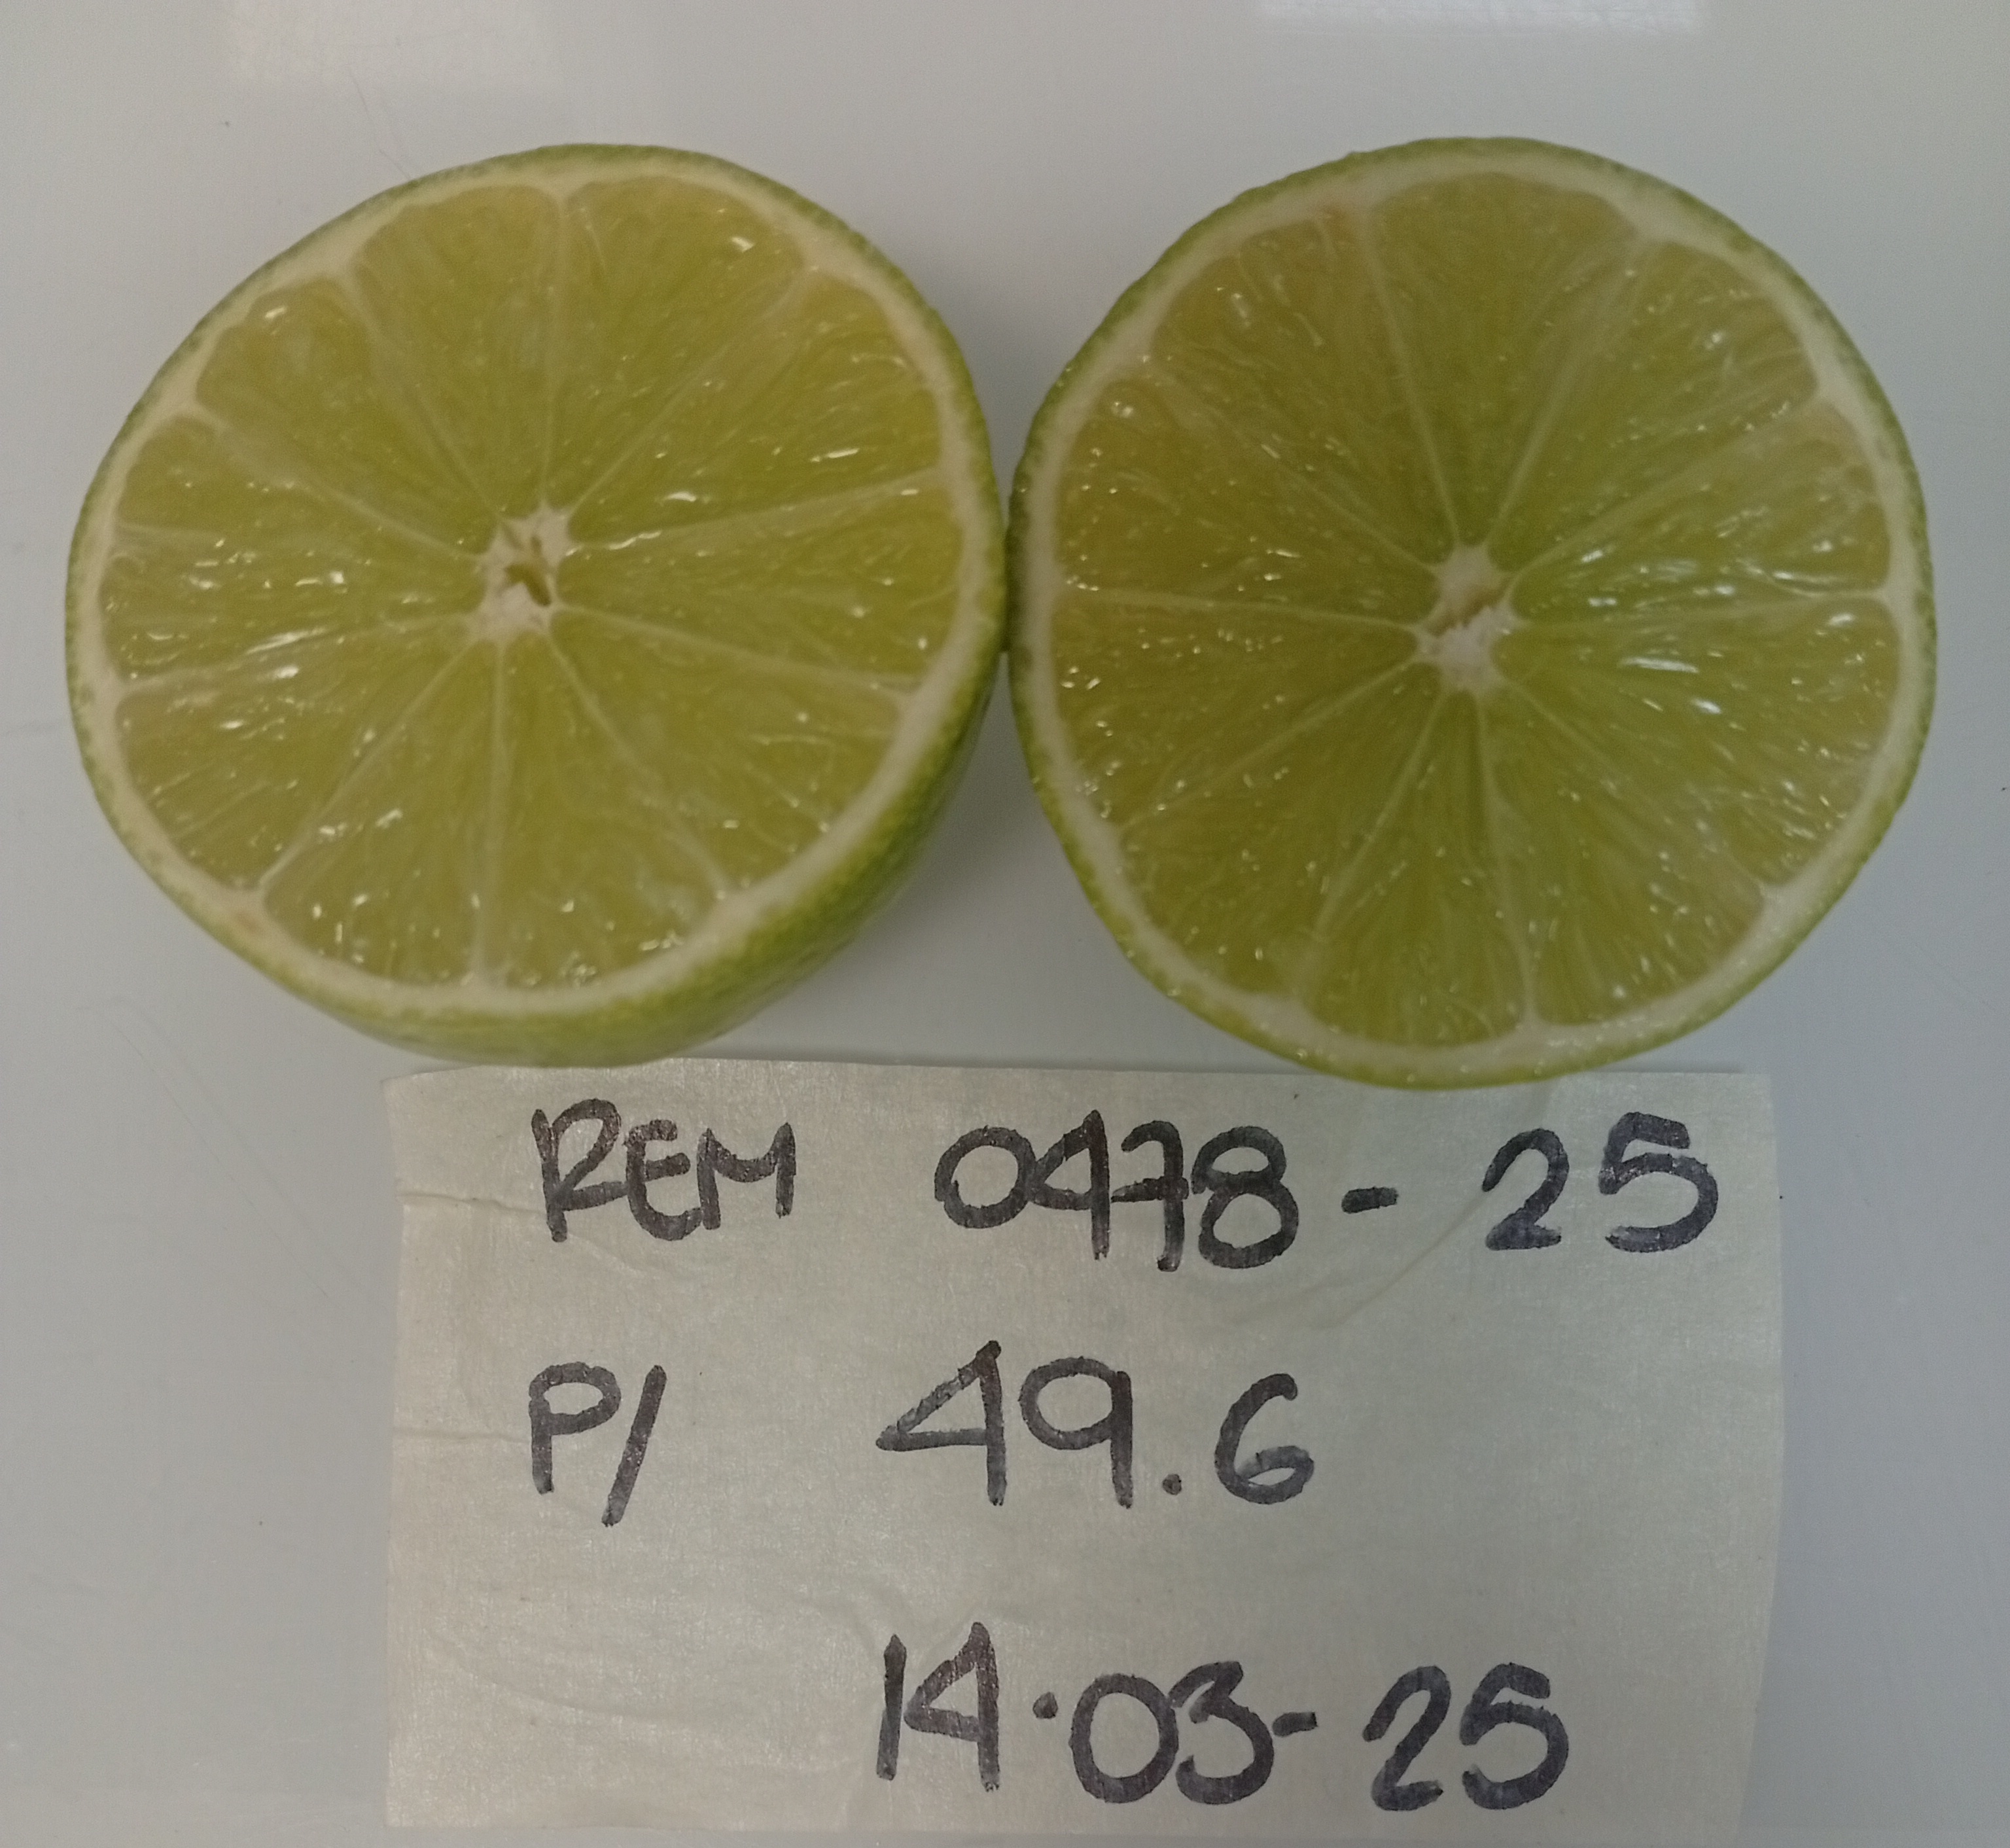 REM 0478 - 25
P/ 49.6
14.03-25